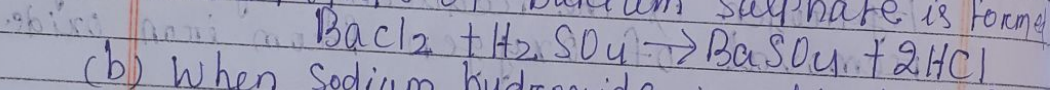 sulphate is formed
BaCl2 + H2 SO4 → BaSO4 + 2HCl
(b) When Sodium hydroxide